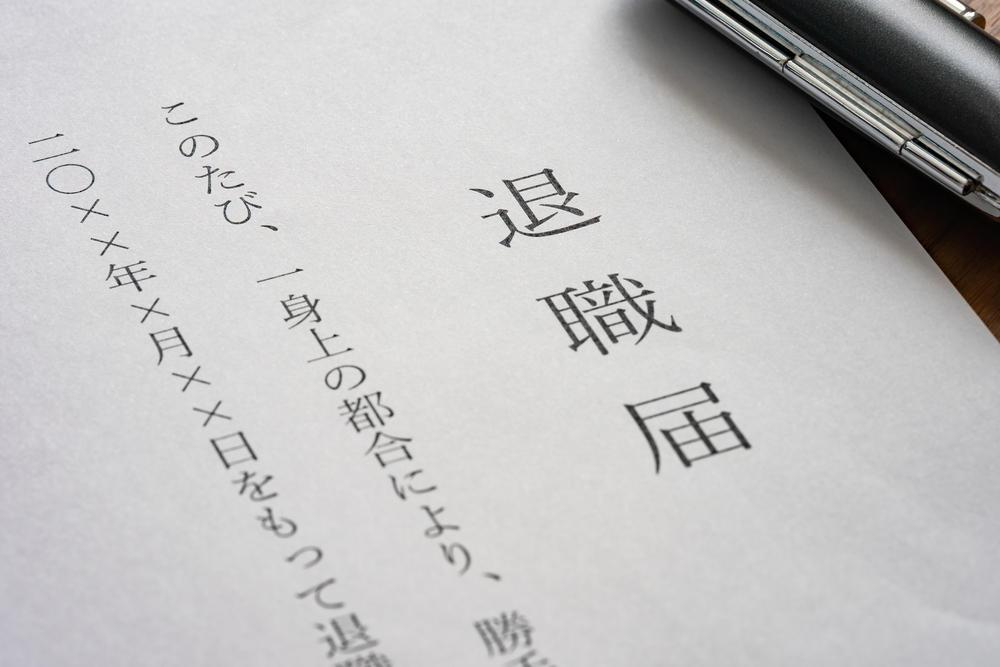 退職届
このたび、一身上の都合により、勝手
二〇××年×月××日をもって退職